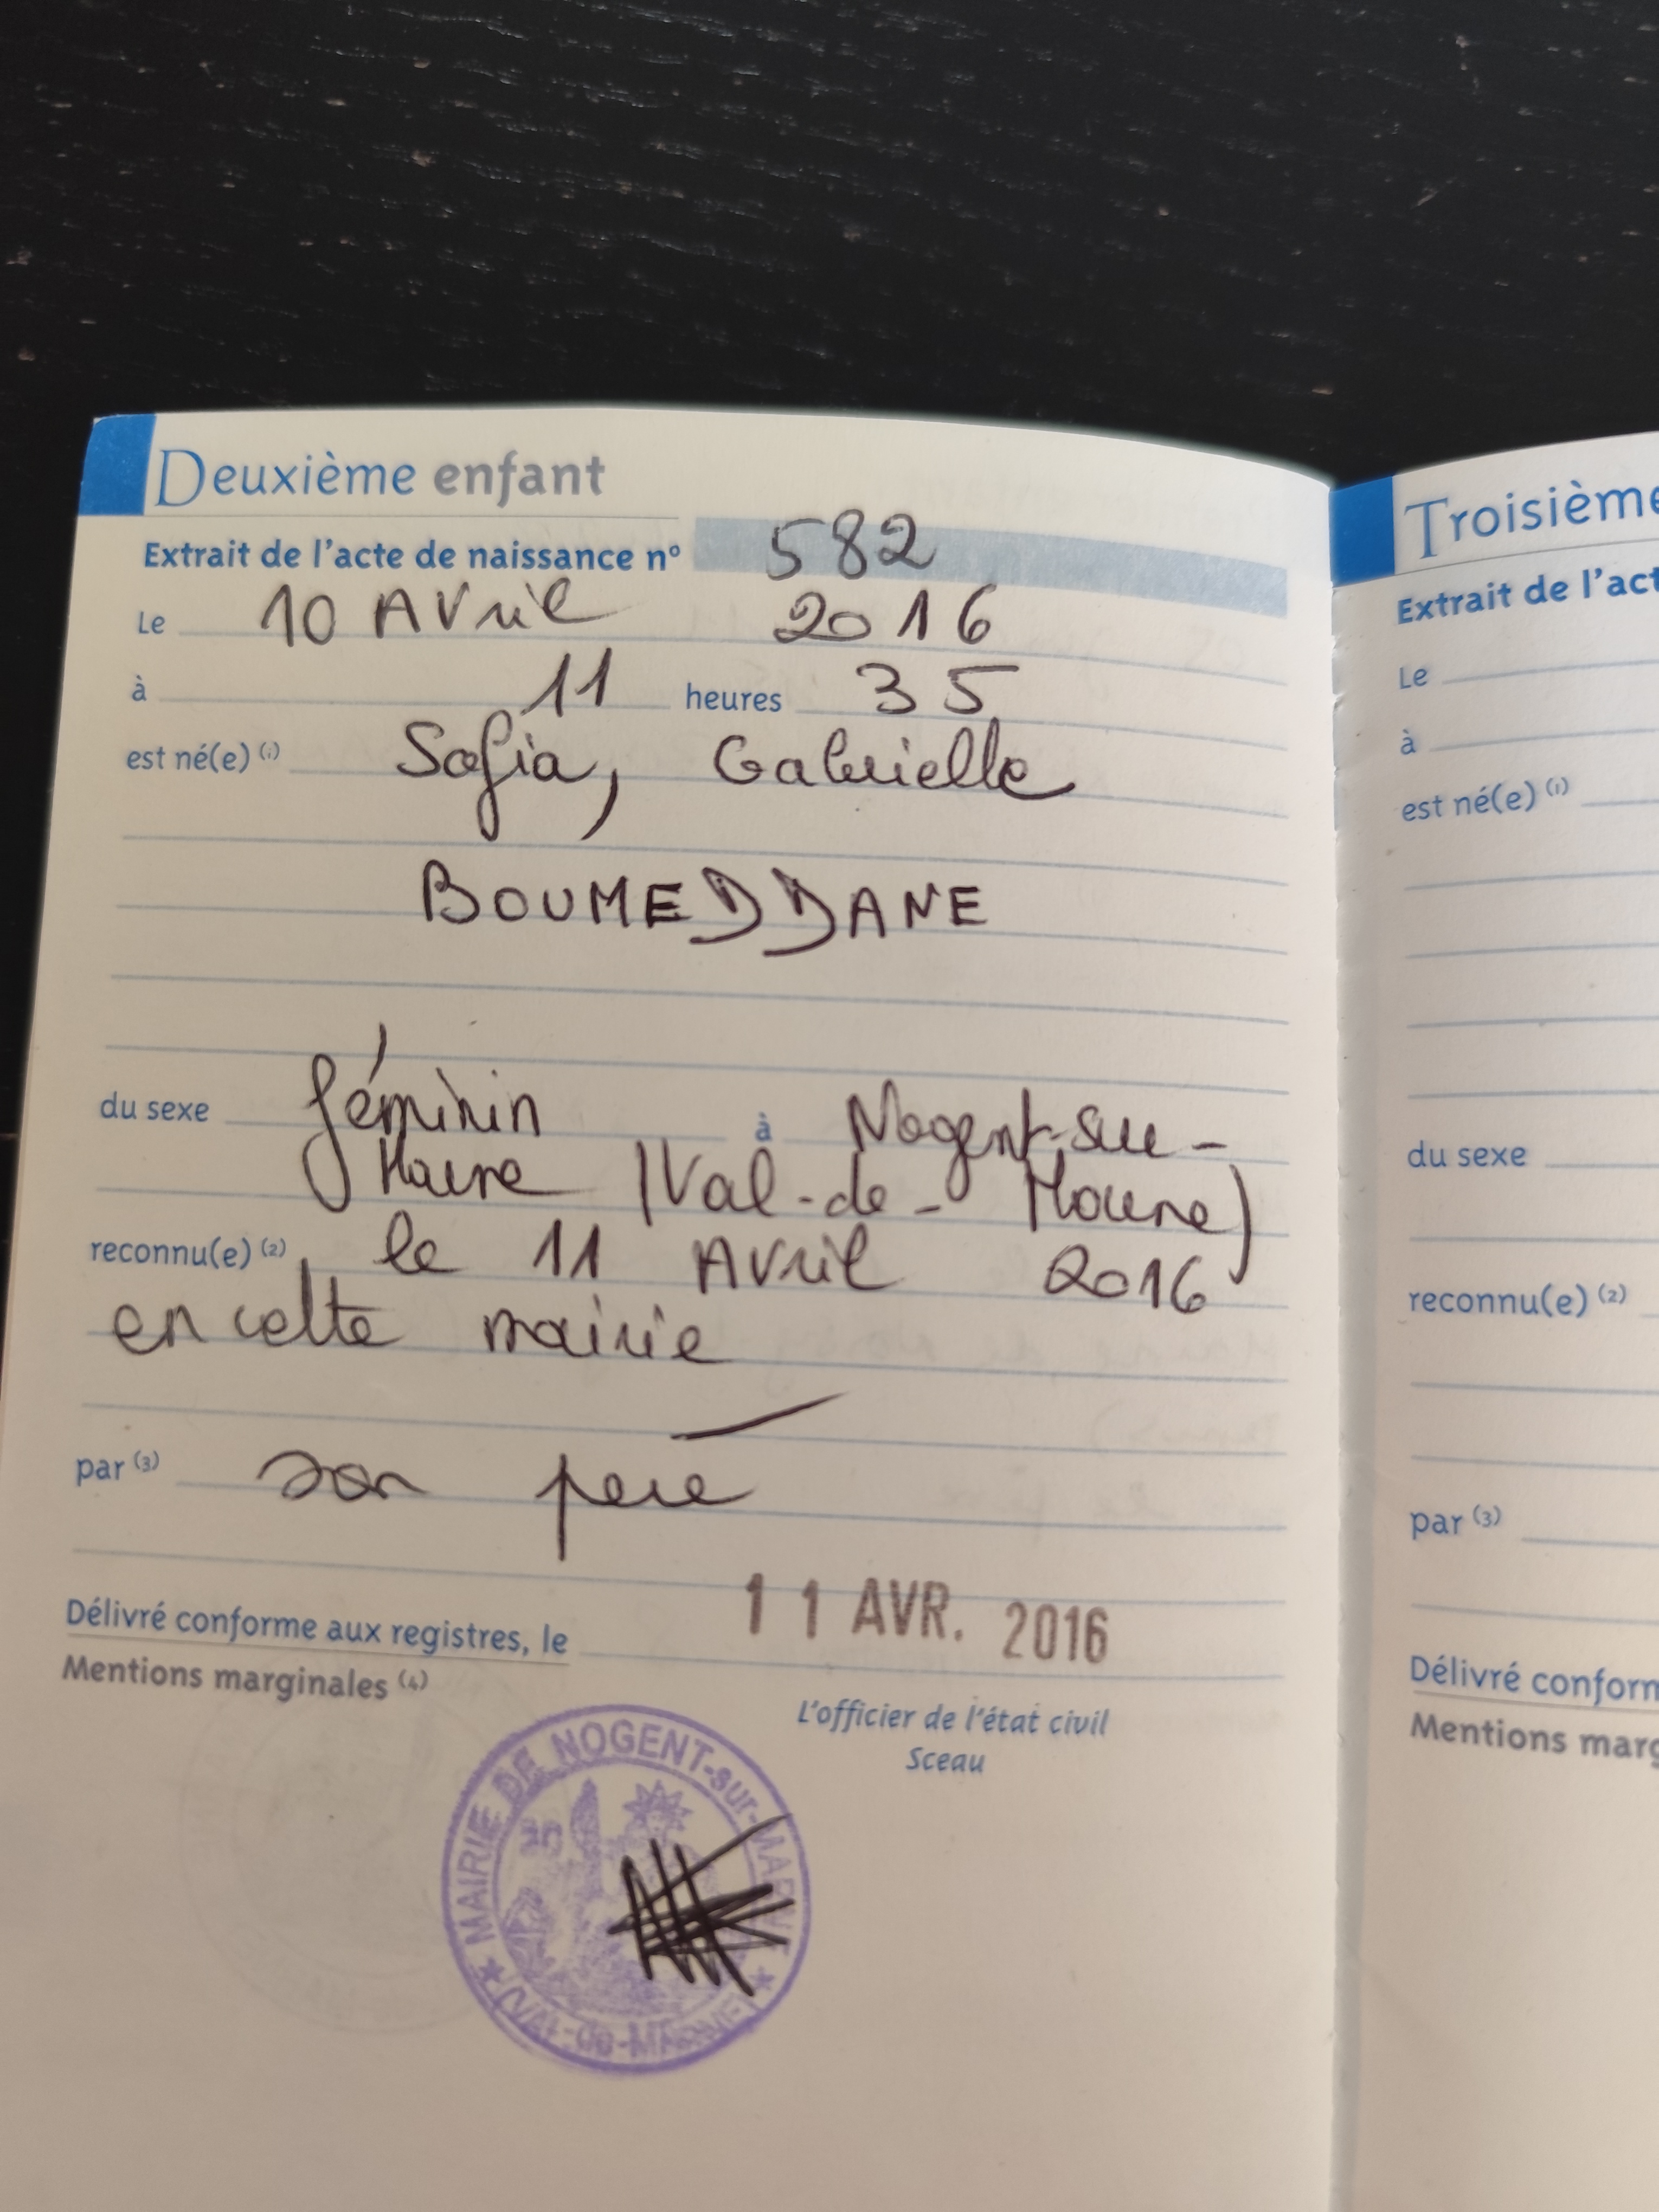 Deuxième enfant
Extrait de l'acte de naissance nº 582
Le 10 Avril 2016
à 11 heures 35
est né(e) (1) Sofia, Gabrielle
BOUMEDDANE
du sexe féminin à Nogent-sur-
Marne (Val-de-Marne)
reconnu(e) (2) le 11 Avril 2016
en cette mairie
par (3) son père
Délivré conforme aux registres, le 11 AVR. 2016
Mentions marginales (4)
L'officier de l'état civil
Sceau
MAIRIE DE NOGENT-sur-MARNE
(VAL-de-MARNE)
Troisième
Extrait de l'act
Le
à
est né(e) (1)
du sexe
reconnu(e) (2)
par (3)
Délivré conform
Mentions marg